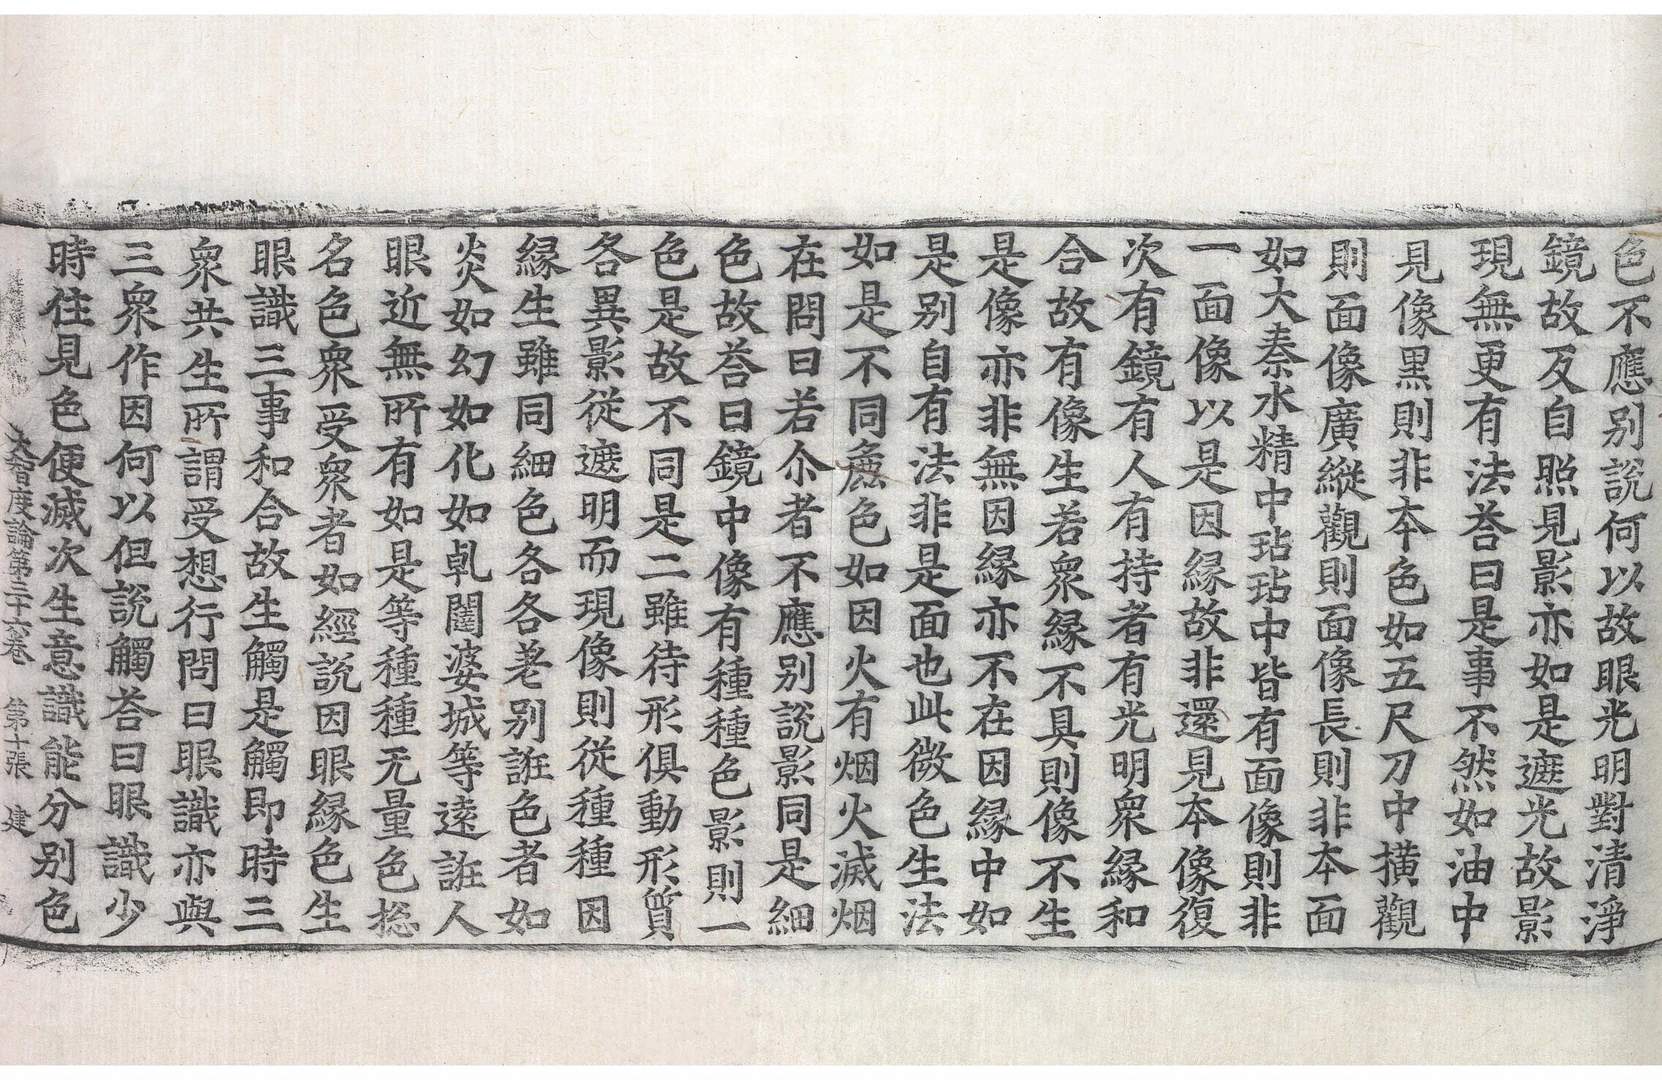 色不應別說何以故眼光明對清淨
鏡故反自照見影亦如是遮光故影
現無更有法荅曰是事不然如油中
見像黑則非本色如五尺刀中橫觀
則面像廣縱觀則面像長則非本面
如大秦水精中玷玷中皆有面像則非
一面像以是因緣故非還見本像復
次有鏡有人有持者有光明衆緣和
合故有像生若衆緣不具則像不生
是像亦非無因緣亦不在因緣中如
是別自有法非是面也此微色生法
如是不同麁色如因火有烟火滅烟
在問曰若尒者不應別說影同是細
色故荅曰鏡中像有種種色影則一
色是故不同是二雖待形俱動形質
各異影從遮明而現像則從種種因
緣生雖同細色各各差別誑色者如
炎如幻如化如乹闥婆城等遠誑人
眼近無所有如是等種種无量色捴
名色衆受衆者如經說因眼緣色生
眼識三事和合故生觸是觸即時三
衆共生所謂受想行問曰眼識亦與
三衆作因何以但說觸荅曰眼識少
時住見色便滅次生意識能分別色
大智度論第三十六卷　第十張　建